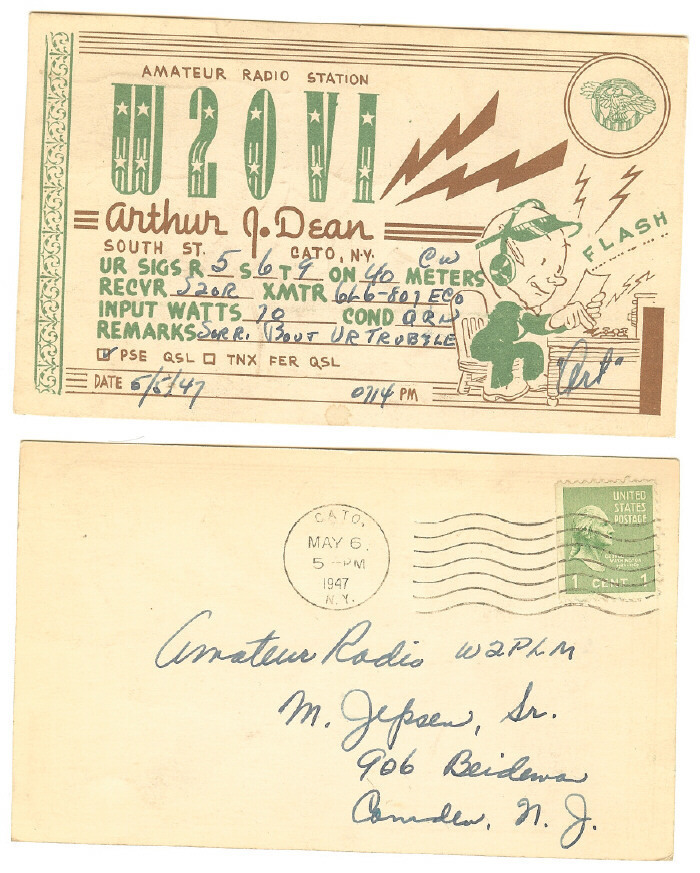 AMATEUR RADIO STATION
W2OVI
Arthur J. Dean
SOUTH ST. CATO, N.Y.
FLASH
UR SIGS R 5 S 6 T 9 ON 40 CW METERS
RECVR S20R XMTR 6L6-807 ECO
INPUT WATTS 70 COND QRN
REMARKS Sorr. 'Bout UR TRUBBLE
PSE QSL TNX FER QSL
DATE 5/5/47 0714 PM
"Art"
CATO,
MAY 6
5 - PM
1947
N.Y.
UNITED
STATES
POSTAGE
1 CENT 1
Amateur Radio W2PLM
M. Jepsen, Sr.
906 Beideman
Camden, N. J.